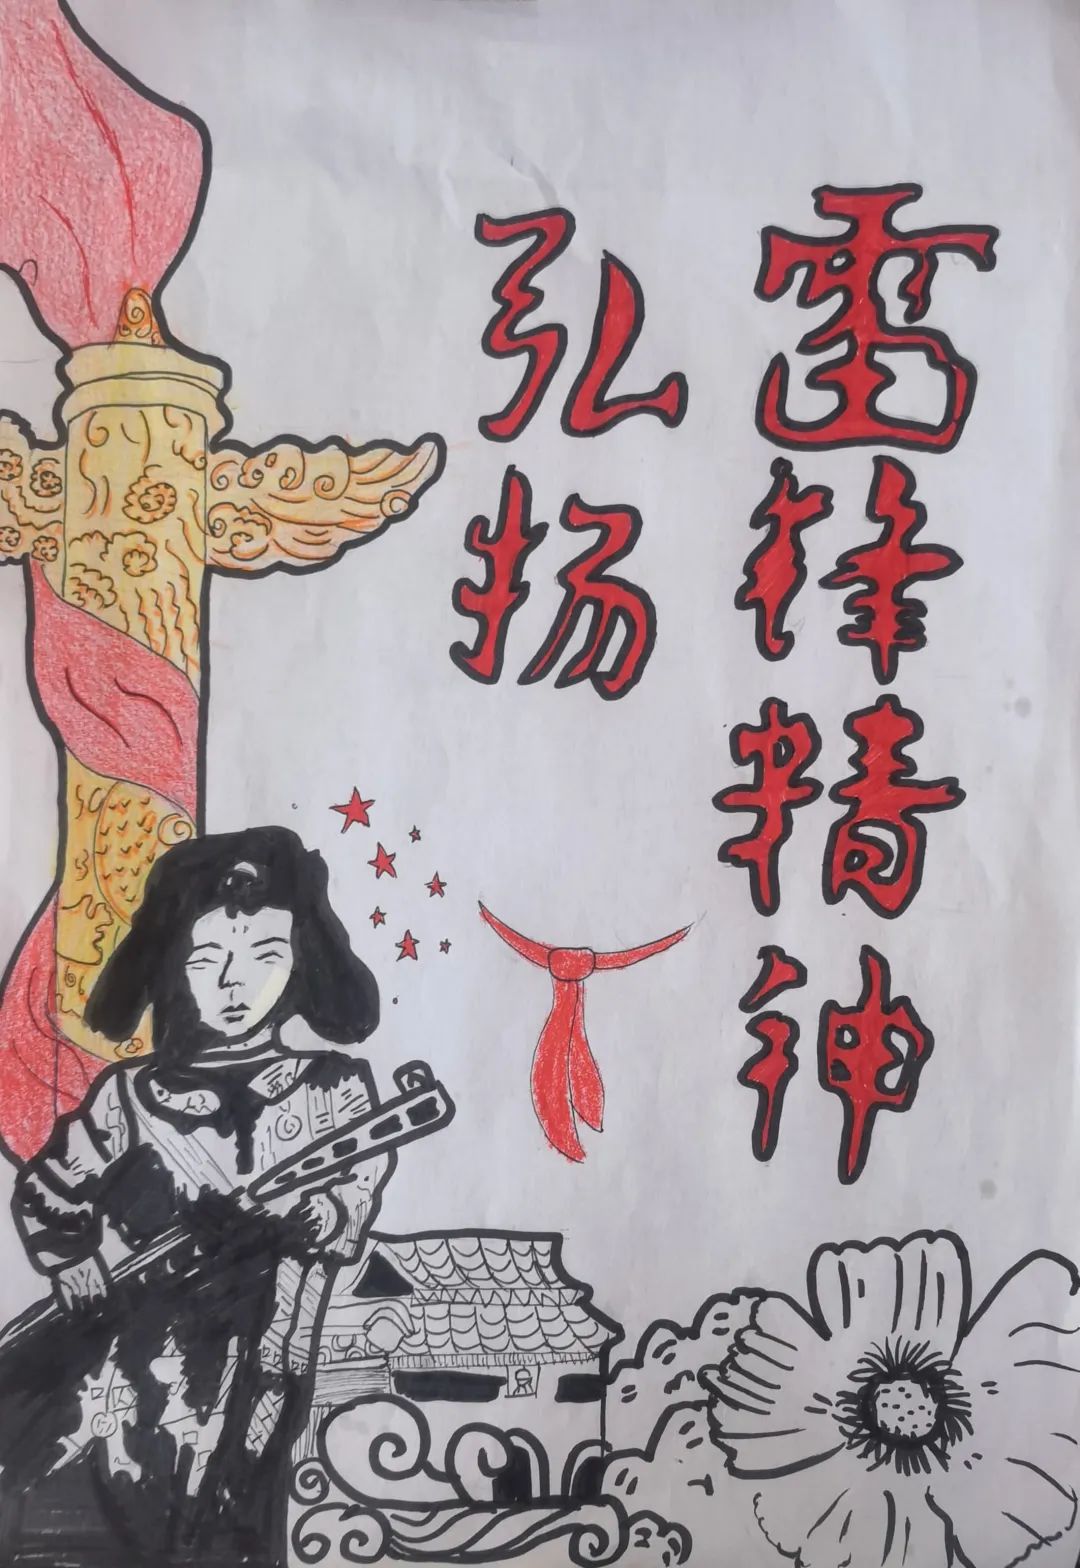 弘扬
雷锋精神